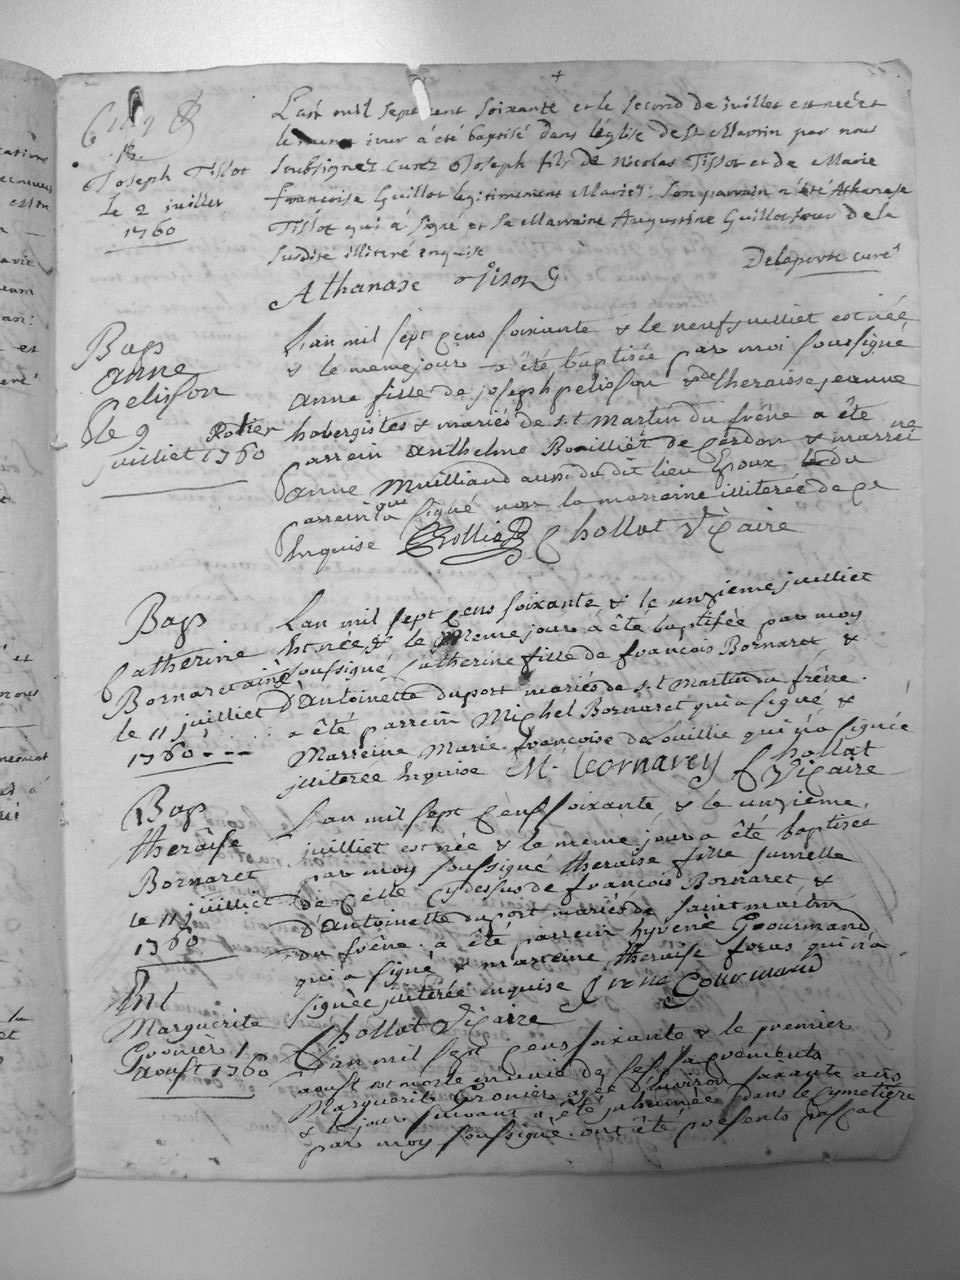 Joseph Tissot
le 2 juillet
1760
L'an mil sept cent soixante et le second de juillet est né et
le meme jour à été baptisé dans l'église de St Martin par nous
soubsignez curez Joseph fils de Nicolas Tissot et de Marie
Françoise Guillot legitimement Mariés: son parrain a été Athanase
Tissot qui à signé et sa Marraine Augustine Guillot de la
susdite illitéré enquise
Delaporte curé
Athanase
Bap
anne
pelisson
le 9
juilliet 1760
L'an mil sept cens soixante & le neuf juilliet est née
& le meme jour a été baptisée par moi soussigné
anne fille de joseph pelisson & de theraisse jeanne
hobergistes & mariés de st Martin du frêne a été
parrein anthelme Bouilliet de Cerdon & marrei
ne
anne Muilliand aussi du dit lieu Epoux du
parrein qui a signé non la marreine illiterée de ce
Enquise Chollat Vicaire
Bap
Catherine
Bornaret ainé
le 11 juilliet
1760
L'an mil sept cens soixante & le unzieme juilliet
Est née & le meme jour a été baptisée par moy
soussigné Catherine fille de françois Bornaret &
d'Antoinette duport mariés de st martin du frêne.
a été parrein Michel Bornaret qui a signé &
Marreine Marie francoise qui n'a signée
juiteree Enquise Chollat
Vicaire
Bap
theraise
Bornaret
le 11 juilliet
1760
L'an mil sept cens soixante & le unzieme
juilliet est née & le meme jour a été baptisée
par moy soussigné theraise fille jumelle
de celle cy dessus de françois Bornaret &
d'Antoinette duport mariés de saint martin
du frêne. a été parrein hyrené Gourmand
qui a signé & marreine theraise qui n'a
signée juiterée enquise Irené Gourmand
Chollat Vicaire
Marguerite
Gronier 1
Aoust 1760
L'an mil sept cens soixante & le premier
aoust est morte munie de sess sacrements
Marguerite Gronier agée d'environ soixante ans
& le jour suivant a été juhumée dans le Cymetiere
par moy soussigné. ont été présents pascal